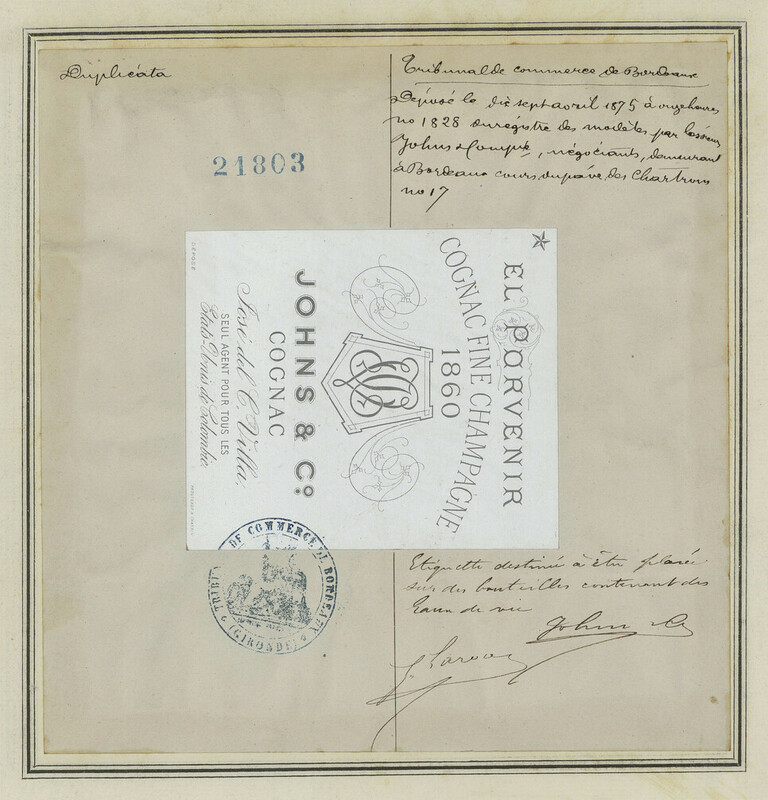 Duplicata
21803
Tribunal de commerce de Bordeaux
Déposé le dix sept avril 1875 à onze heures
no 1828 du registre des modèles par les sieurs
Johns & Compie, négociants, demeurant
à Bordeaux cours du pavé des Chartrons
no 17
EL PORVENIR
COGNAC FINE CHAMPAGNE
1860
JOHNS & Co.
COGNAC
José del C. Villa.
SEUL AGENT POUR TOUS LES
États-Unis de Colombie.
DÉPOSÉ
TRIBUNAL DE COMMERCE DE BORDEAUX
(GIRONDE)
Etiquette destinée à être placée
sur des bouteilles contenant des
Eaux de vie
Johns Co